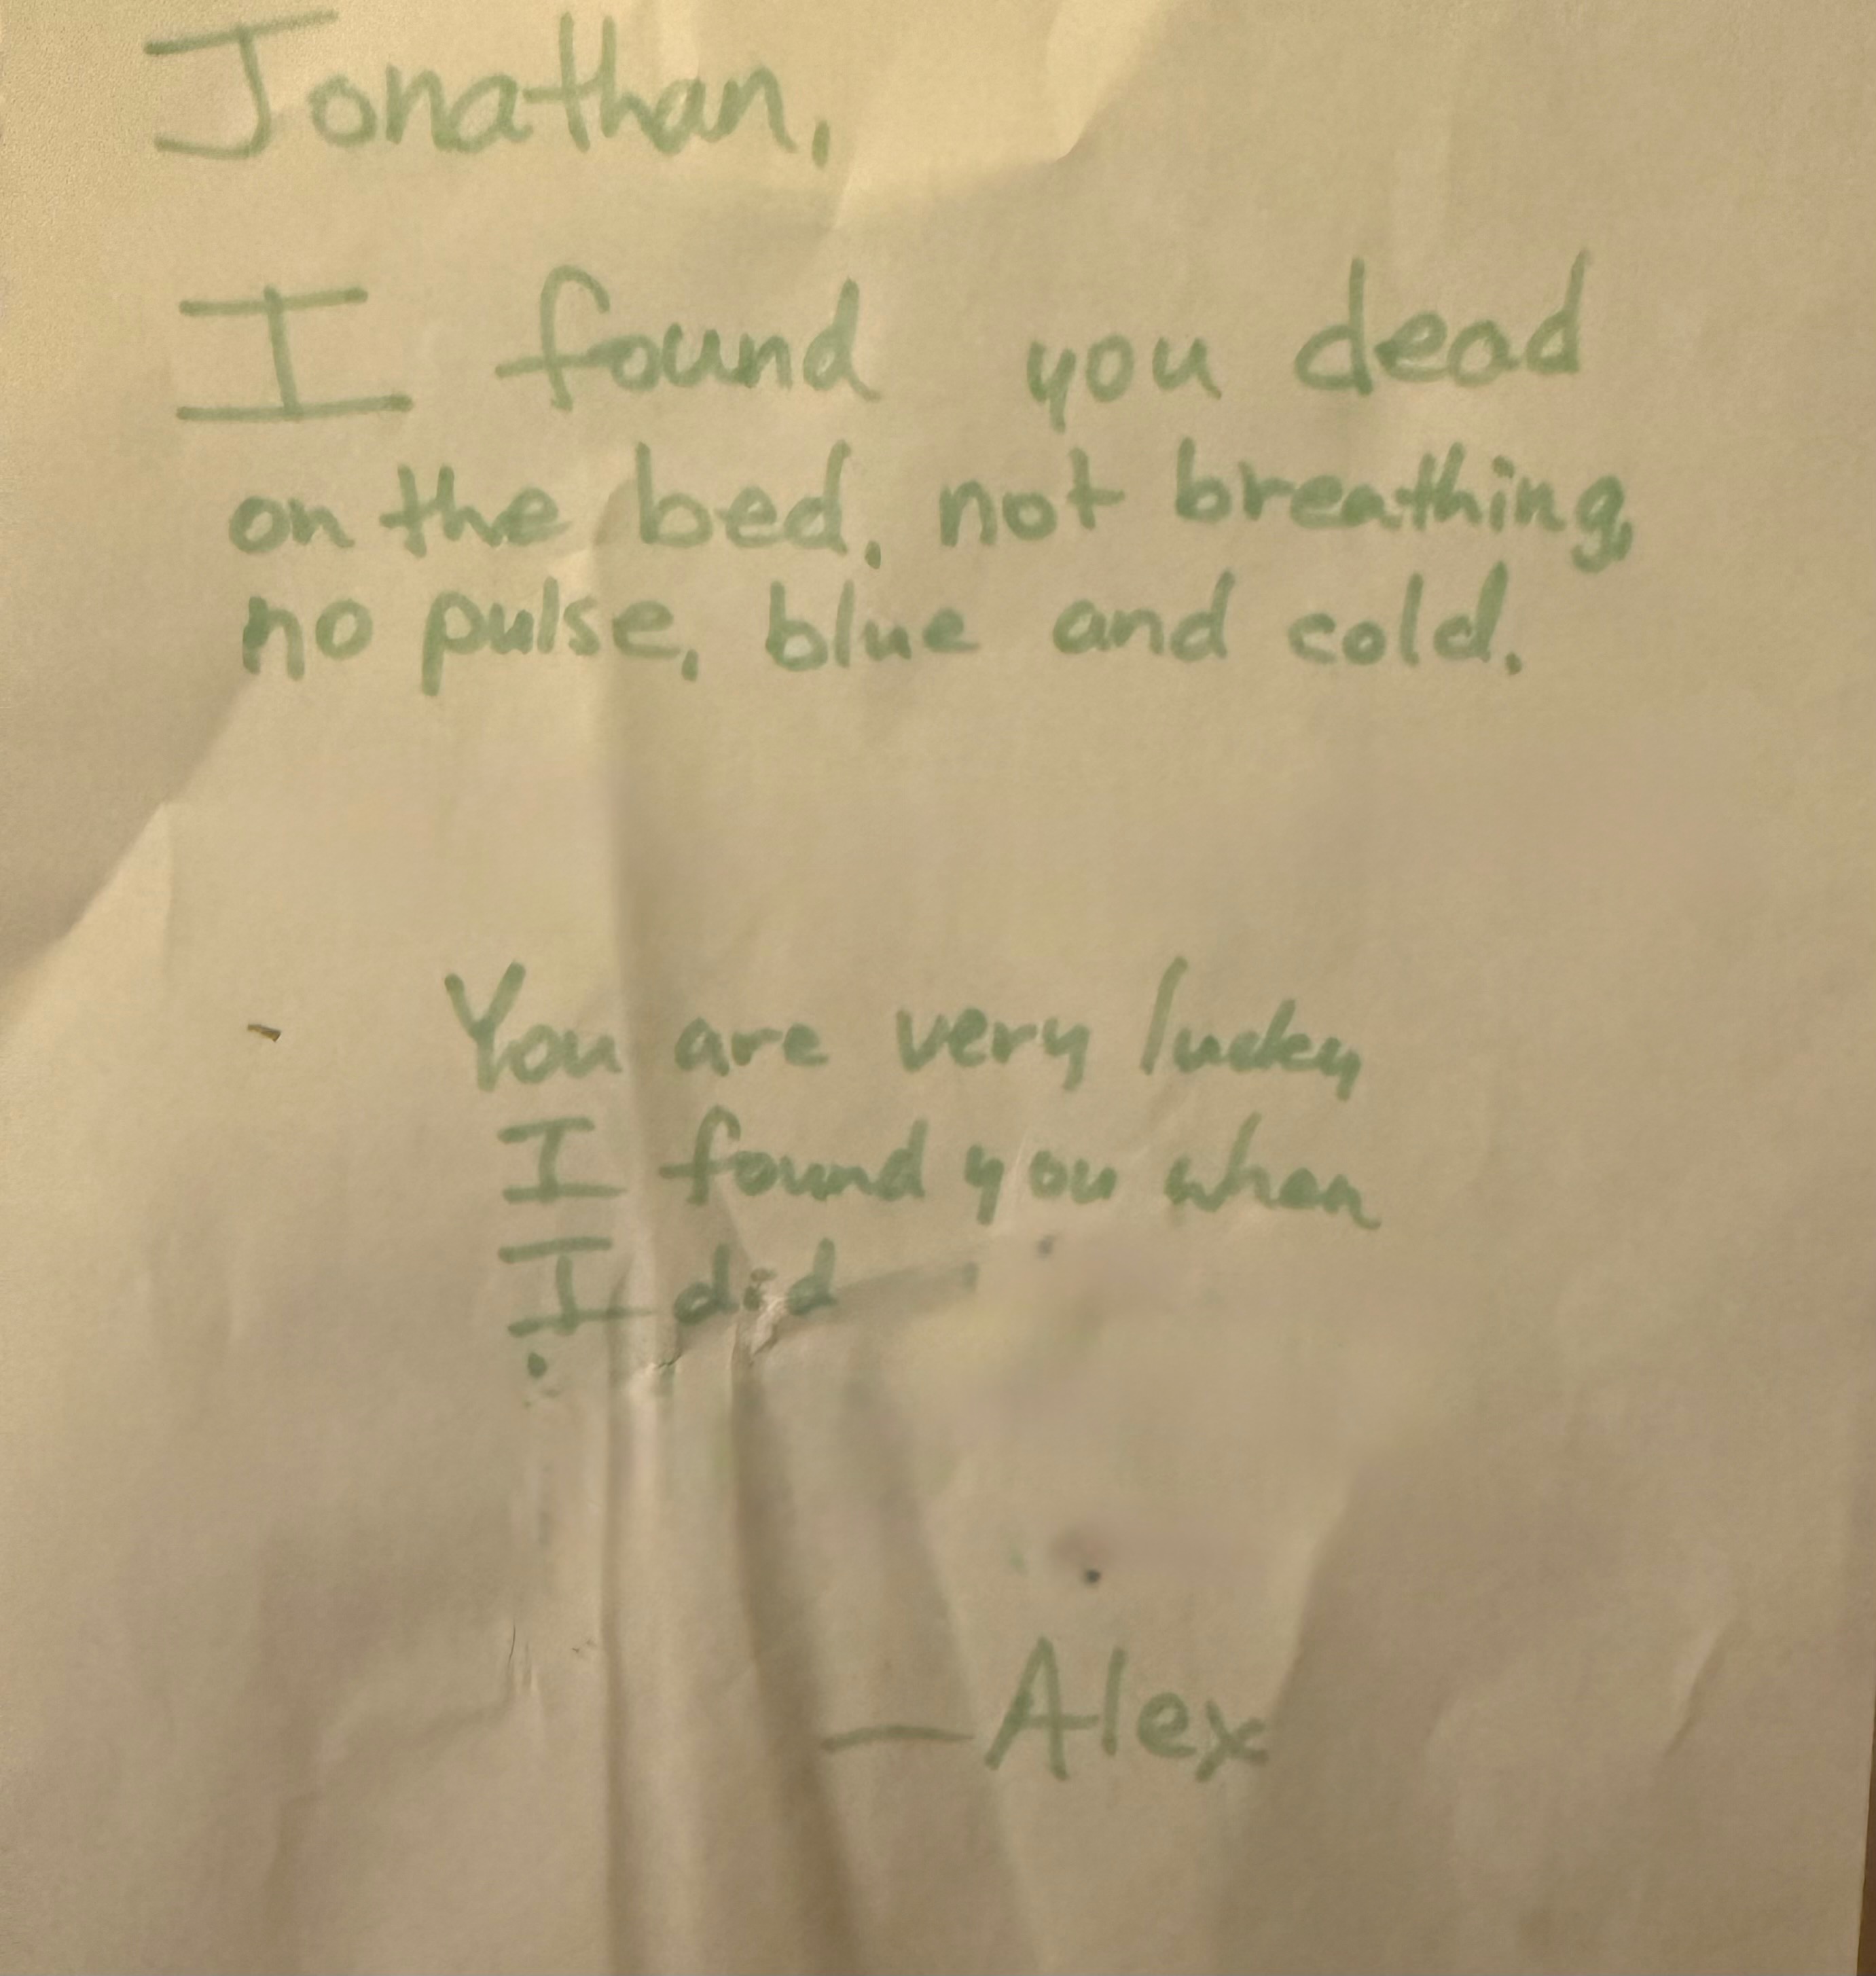 Jonathan,
I found you dead
on the bed, not breathing,
no pulse, blue and cold.
You are very lucky
I found you when
I did
— Alex